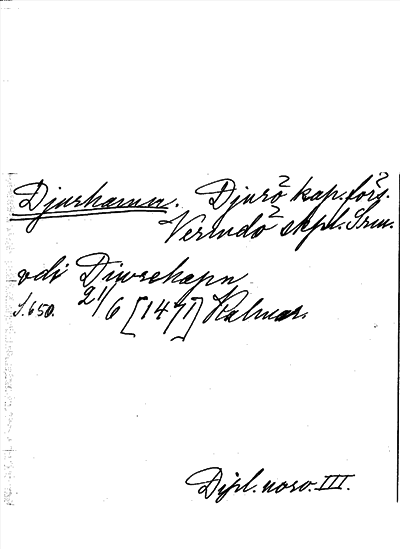 Djurhamn. Djurö kap. förs.
Vermdö skpl. Srm.
vdi Diwrehapn
S. 650. 21/6 [1471] Kalmar.
Dipl. norv. III.